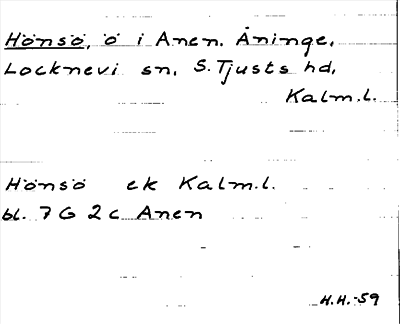 Hönsö, ö i Anen. Åninge,
Locknevi sn, S. Tjusts hd,
Kalm.l.
Hönsö ek Kalm.l.
bl. 7 G 2 c Anen
H.H.-59